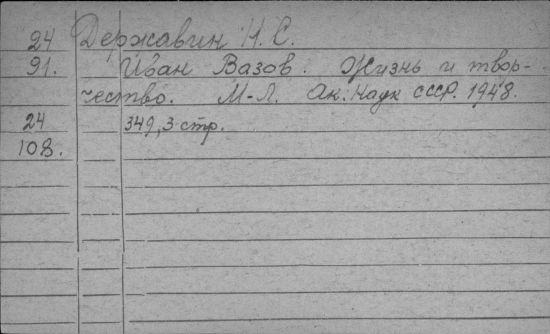 24 Державин Н. С.
91. Иван Вазов. Жизнь и твор-
чество. М-Л. Ак. Наук СССР. 1948.
24 349, 3 стр.
108.